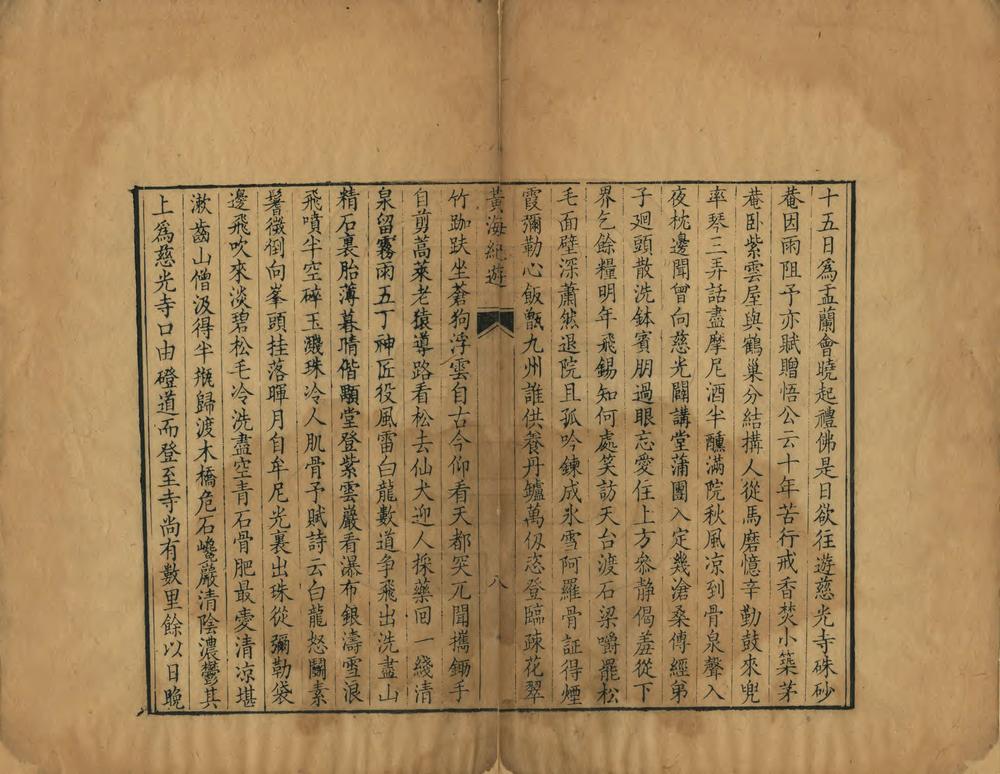 十五日為盂蘭會曉起禮佛是日欲往遊慈光寺硃砂
菴因雨阻予亦賦贈悟公云十年苦行戒香焚小築茅
菴卧紫雲屋與鶴巢分結搆人從馬磨憶辛勤鼓來兜
率琴三弄話盡摩尼酒半醺滿院秋風凉到骨泉聲入
夜枕邊聞曾向慈光闢講堂蒲團入定幾滄桑傳經弟
子廻頭散洗鉢賓朋過眼忘愛住上方叅静偈羞從下
界乞餘糧明年飛錫知何處笑訪天台渡石梁嚼罷松
毛面壁深蕭然退院且孤吟鍊成氷雪阿羅骨証得煙
霞彌勒心飯甑九州誰供養丹鑪萬仭恣登臨疎花翠
黃海紀遊
八
竹跏趺坐蒼狗浮雲自古今仰看天都突兀聞攜鋤手
自剪蒿萊老猿導路看松去仙犬迎人採藥回一綫清
泉留霧雨五丁神匠役風雷白龍數道争飛出洗盡山
精石裏胎薄暮晴偕顒堂登紫雲巖看瀑布銀濤雪浪
飛噴半空碎玉濺珠冷人肌骨予賦詩云白龍怒鬬素
鬐徵倒向峯頭挂落暉月自牟尼光裏出珠從彌勒袋
邊飛吹來淡碧松毛冷洗盡空青石骨肥最愛清凉堪
漱齒山僧汲得半瓶歸渡木橋危石巉巖清陰濃鬱其
上為慈光寺口由磴道而登至寺尚有數里餘以日晚